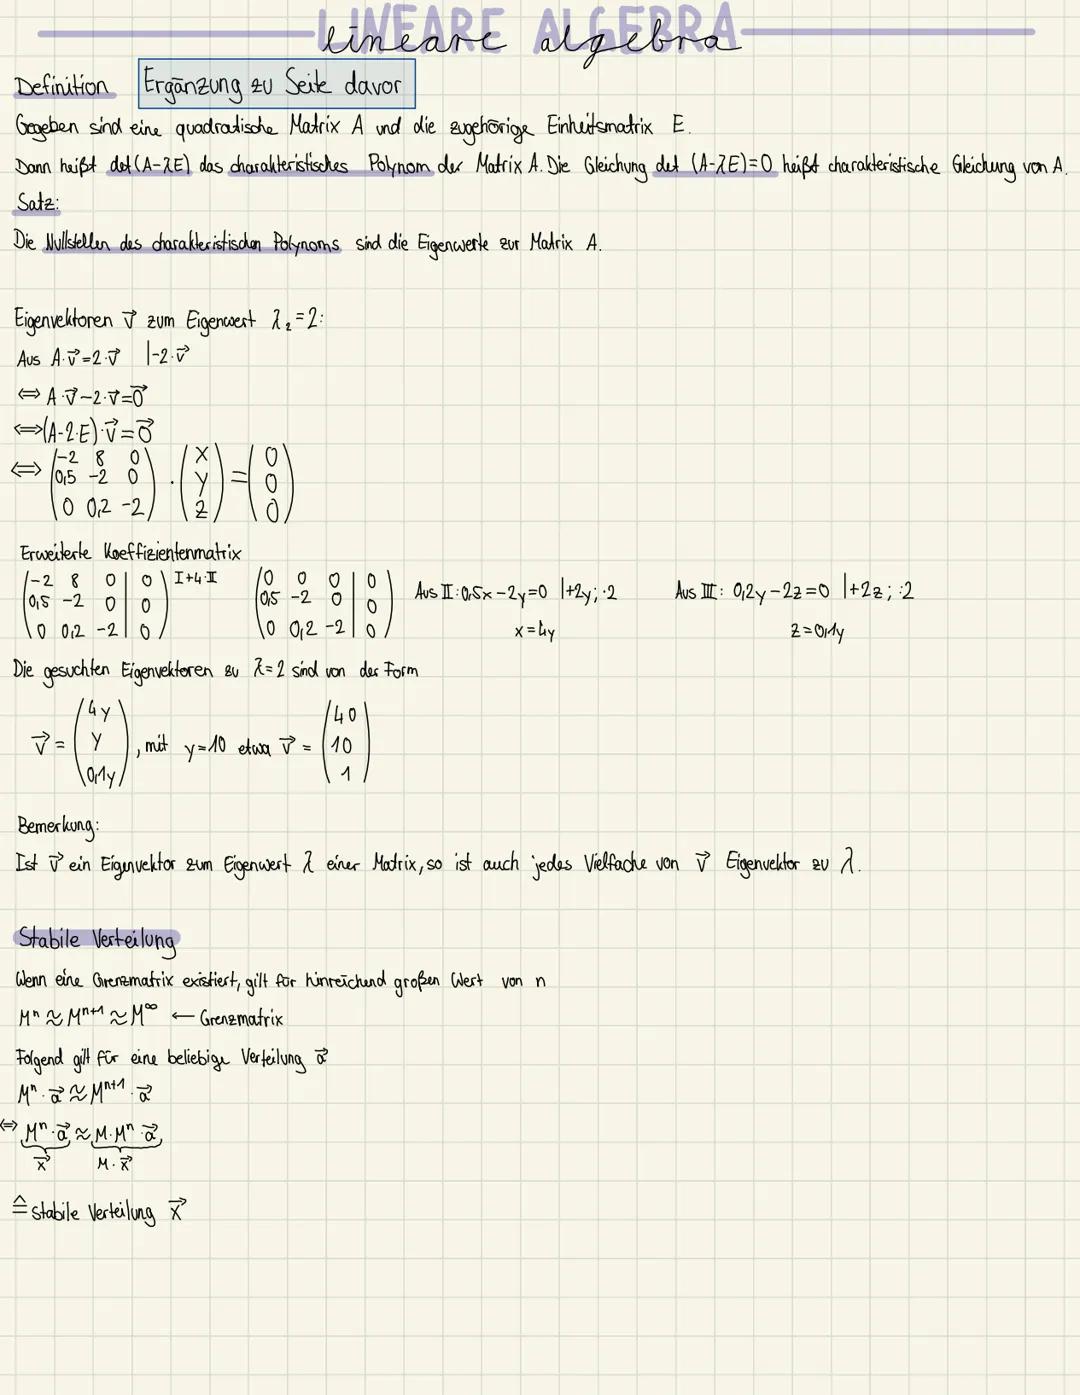 LINEARE ALGEBRA
lineare algebra
Definition Ergänzung zu Seite davor
Gegeben sind eine quadratische Matrix A und die zugehörige Einheitsmatrix E.
Dann heißt det (A-λE) das charakteristisches Polynom der Matrix A. Die Gleichung det (A-λE)=0 heißt charakteristische Gleichung von A.
Satz:
Die Nullstellen des charakteristischen Polynoms sind die Eigenwerte zur Matrix A.
Eigenvektoren v⃗ zum Eigenwert λ₂=2:
Aus A·v⃗=2·v⃗ |-2·v⃗
⇔ A·v⃗-2·v⃗=0⃗
⇔(A-2·E)·v⃗=0⃗
⇔ (-2 8 0; 0,5 -2 0; 0 0,2 -2) · (x; y; z) = (0; 0; 0)
Erweiterte Koeffizientenmatrix
(-2 8 0 | 0; 0,5 -2 0 | 0; 0 0,2 -2 | 0) I+4·II (0 0 0 | 0; 0,5 -2 0 | 0; 0 0,2 -2 | 0) Aus II: 0,5x-2y=0 |+2y; ·2 Aus III: 0,2y-2z=0 |+2z; :2
x=4y z=0,1y
Die gesuchten Eigenvektoren zu λ=2 sind von der Form
v⃗ = (4y; y; 0,1y), mit y=10 etwa v⃗ = (40; 10; 1)
Bemerkung:
Ist v⃗ ein Eigenvektor zum Eigenwert λ einer Matrix, so ist auch jedes Vielfache von v⃗ Eigenvektor zu λ.
Stabile Verteilung
Wenn eine Grenzmatrix existiert, gilt für hinreichend großen Wert von n
Mⁿ ≈ Mⁿ⁺¹ ≈ M^∞ ← Grenzmatrix
Folgend gilt für eine beliebige Verteilung a⃗
Mⁿ·a⃗ ≈ Mⁿ⁺¹·a⃗
⇔ Mⁿ·a⃗ ≈ M·Mⁿ·a⃗
x⃗ M·x⃗
≙ Stabile Verteilung x⃗